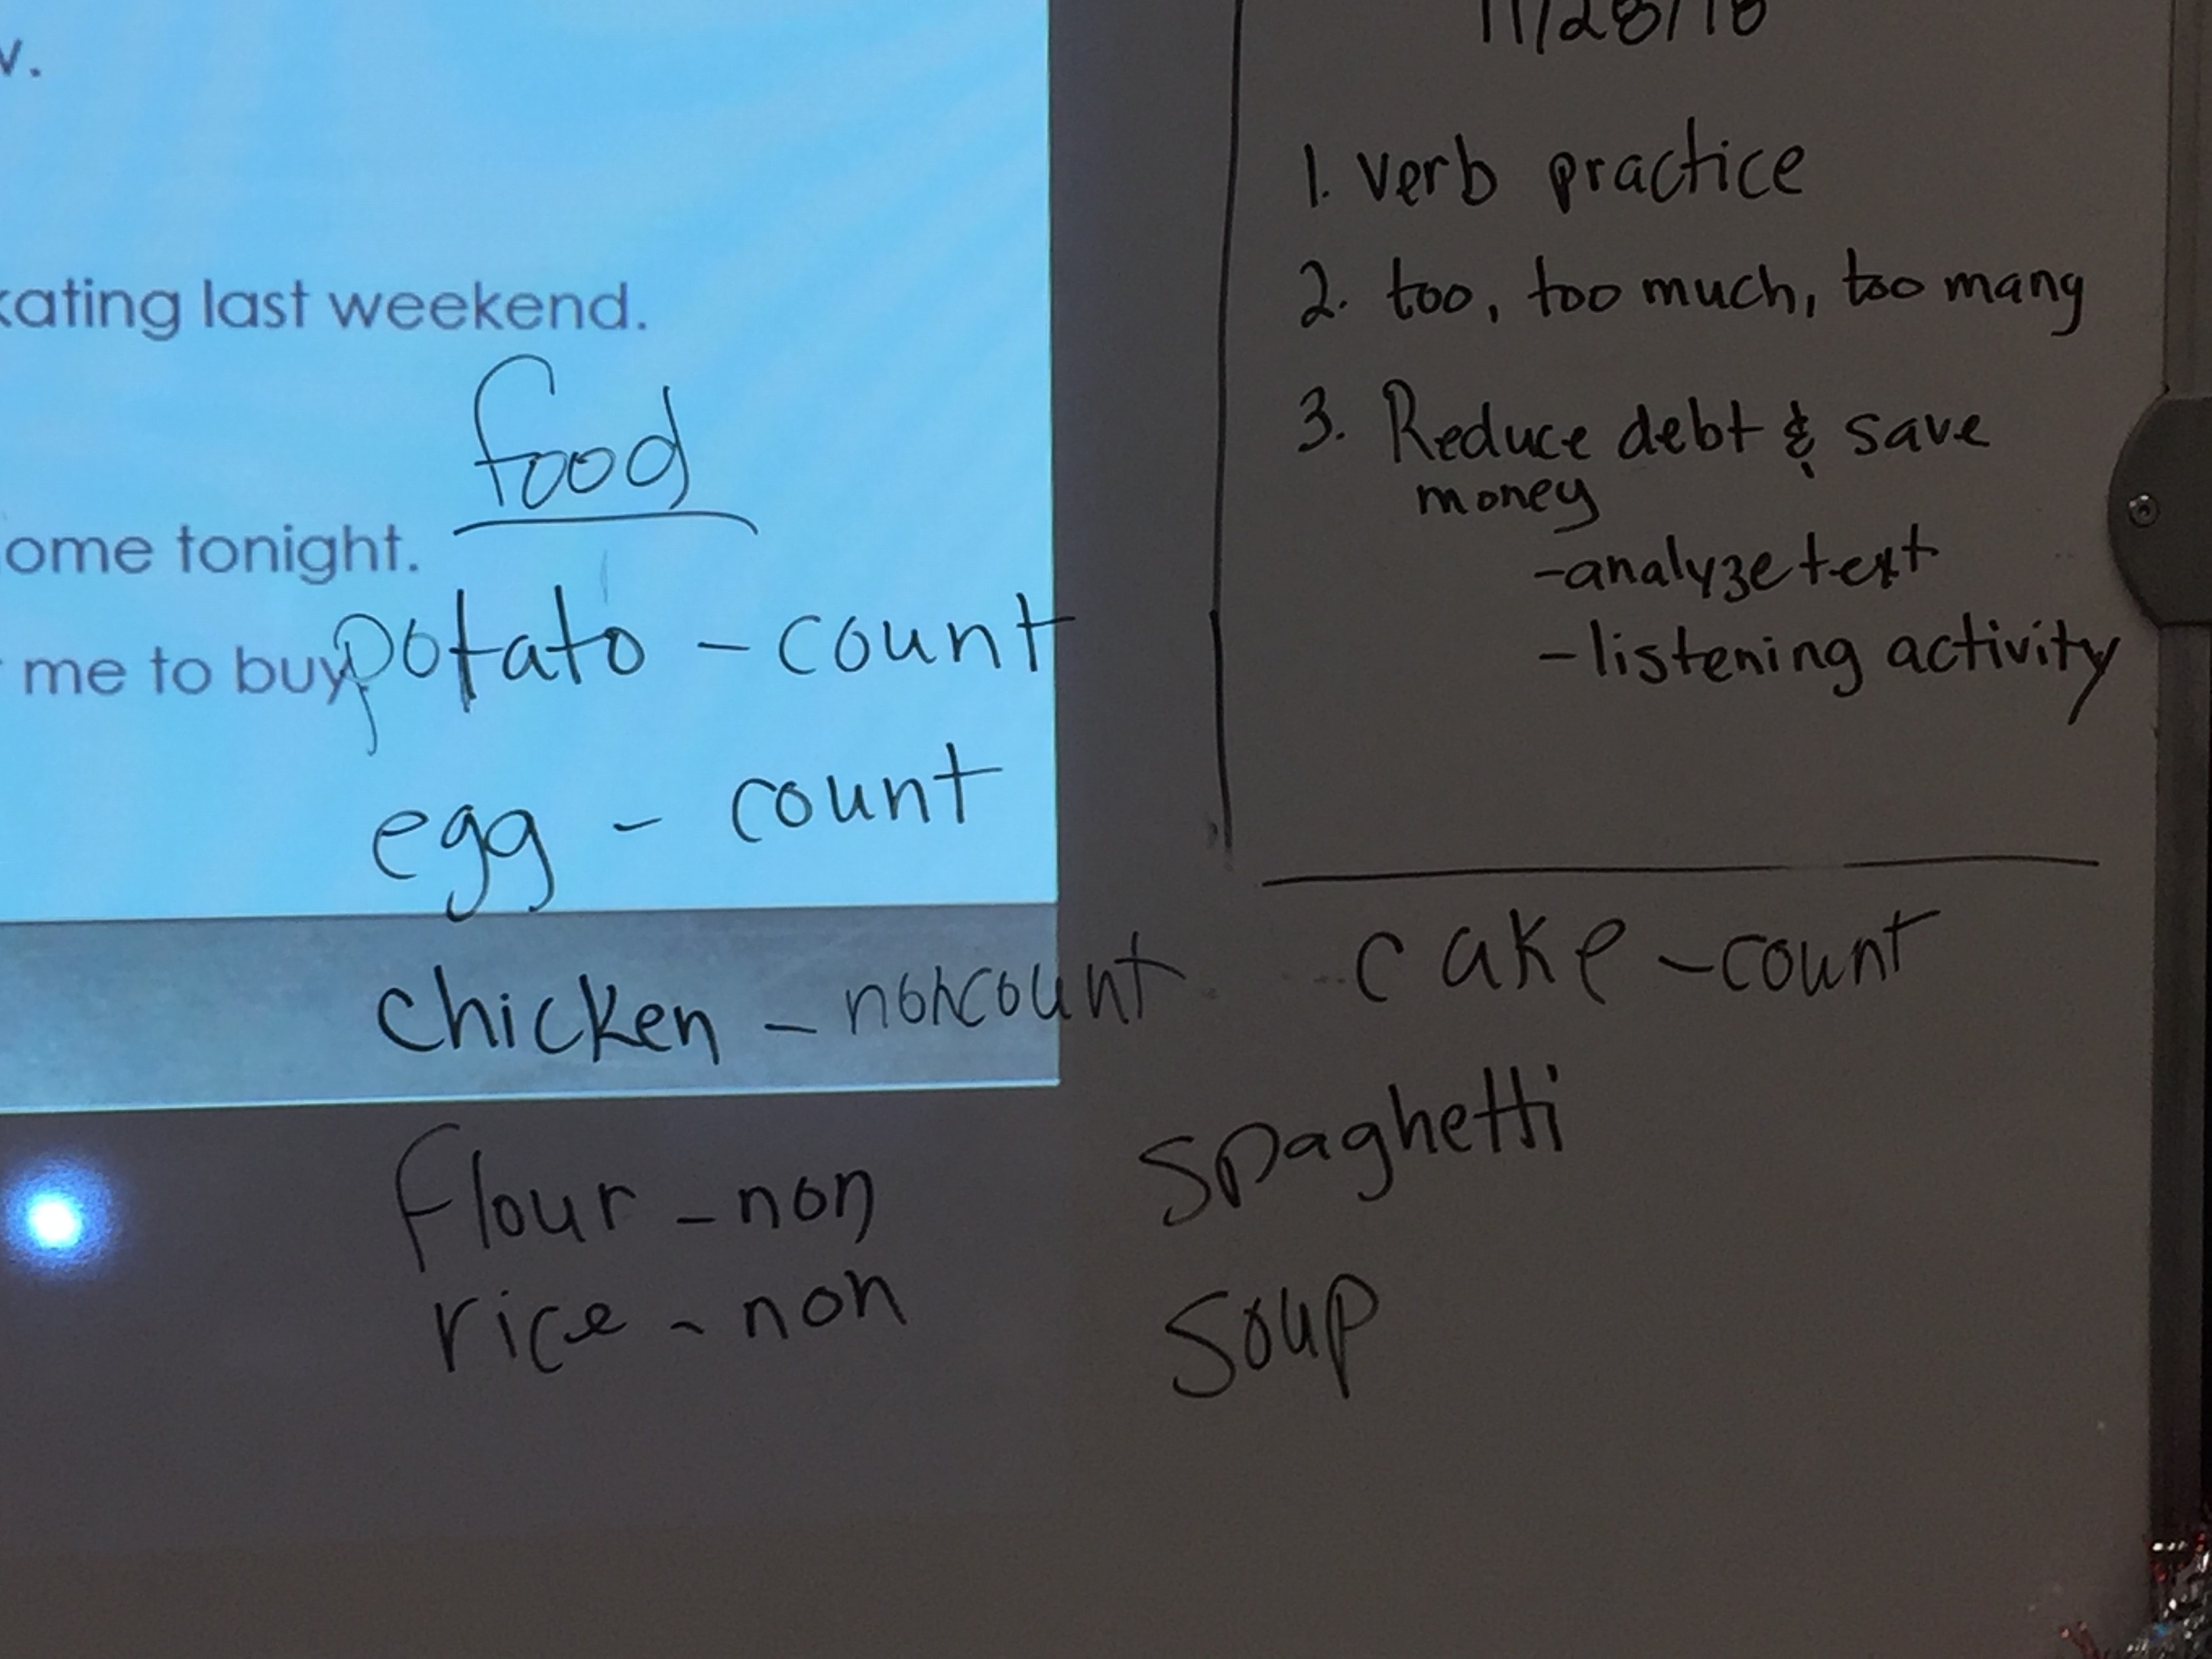 last weekend.
food
tonight.
me to buy
potato - count
egg - count
chicken - noncount
flour - non
rice - non
11/28/18
1. verb practice
2. too, too much, too many
3. Reduce debt & save
money
-analyze text
-listening activity
cake - count
spaghetti
soup